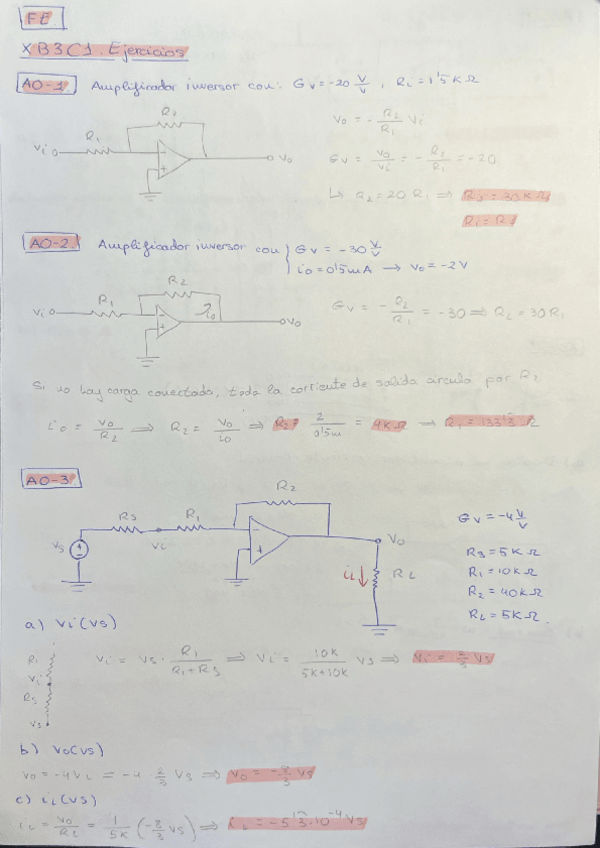 FE
XB3C1. Ejercicios
AO-1 Amplificador inversor con: Gv = -20 V/V, Ri = 1'5 KΩ
R2
R1
Vi
Vo
Vo = - R2/R1 Vi
Gv = Vo/Vi = - R2/R1 = -20
↳ R2 = 20 R1 ⟹ R2 = 30 KΩ
AO-2. Amplificador inversor con { Gv = -30 V/V
io = 0'5 mA → Vo = -2V
R2
R1
io
Vi
Vo
Gv = - R2/R1 = -30 ⟹ R2 = 30R1
Si no hay carga conectada, toda la corriente de salida circula por R2
io = Vo/R2 ⟹ R2 = Vo/io ⟹ R2 = 2/0'5m = 4KΩ → R1 = 133'3 Ω
AO-3.
R2
Rs
R1
Vs
Vi
Vo
iL
RL
Gv = -4 V/V
Rs = 5KΩ
R1 = 10KΩ
R2 = 40KΩ
RL = 5KΩ.
a) Vi(Vs)
R1
Vi
Rs
Vs
Vi = Vs · R1/(R1+Rs) ⟹ Vi = 10K/(5K+10K) Vs ⟹ Vi = 2/3 Vs
b) Vo(Vs)
Vo = -4Vi = -4 2/3 Vs ⟹ Vo = -8/3 Vs
c) iL(Vs)
iL = Vo/RL = 1/5K (-8/3 Vs) ⟹ iL = -5'3·10⁻⁴ Vs